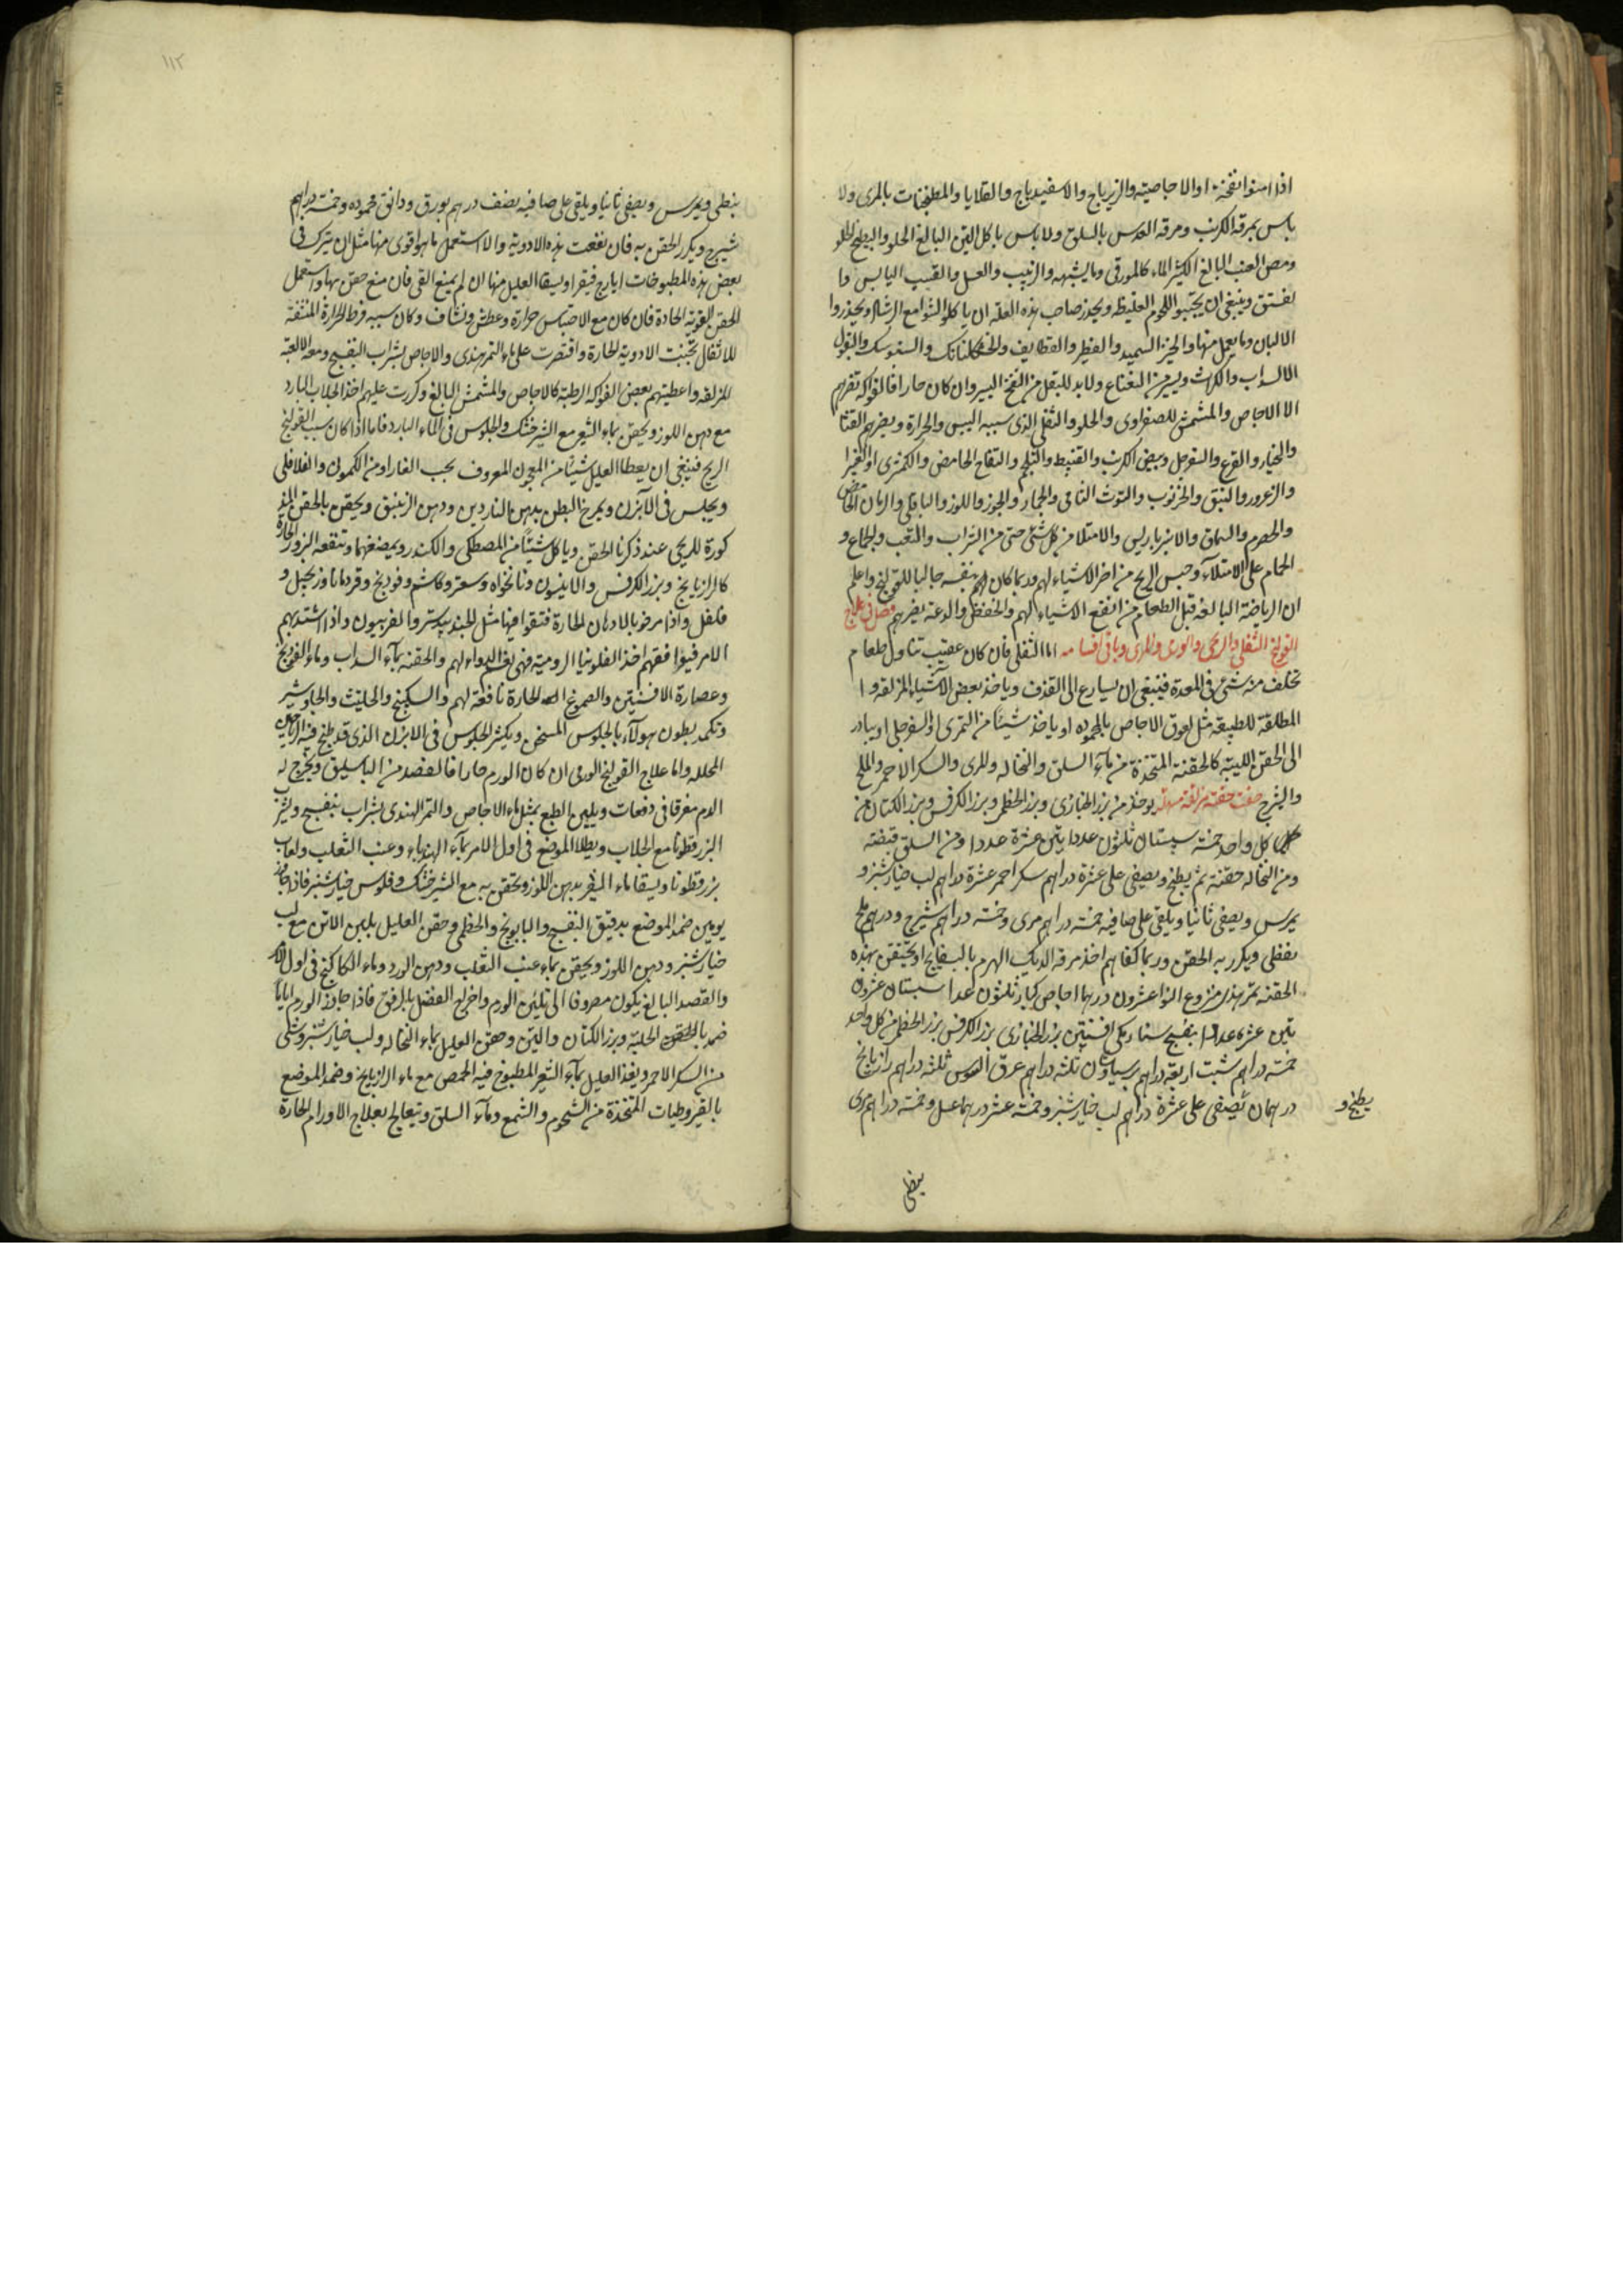 اذا امنوا نفخته او الاجاصية والزيرباج والاسفيدباج والقلايا والمطجنات بالمرى ولا
باس بمرقة الكرنب ومرقة العدس بالسلق ولا باس باكل التين البالغ الحلو والبطيخ الحلو
ومص العنب البالغ الكثير الماء كالمورقى وما يشبهه والزبيب والعسل والقسب اليابس وا
لفستق وينبغى ان يجتنبوا اللحوم الغليظة ويحذر صاحب هذه العلة ان ياكلوا الشوا مع ويحذروا
الالبان وما يعمل منها والخبز السميد والفطير والقطايف والخشكنانك والسنبوسك والبقول
الا السداب والكراث ويسير من النعناع ولا بد للبقل من النفخ اليسير وان كان حارا فالفواكه تضرهم
الا الاجاص والمشمش للصفراوى والحلو والثقلى الذى سببه اليبس والحرارة ويضرهم القثا
والخيار والقرع والسفرجل وبيض الكرنب والقنبيط والشلجم والتفاح الحامض والكمثرى او الغبيرا
والزعرور والنبق والخرنوب والتوث الشامى والجمار والجوز واللوز والباقلى والرمان الحامض
والحصرم والسماق والانبرباريس والامتلا من كل شئ حتى من الشراب والتعب والجماع و
الحمام على الامتلآء وحبس الريح من اضر الاشياء لهم وربما كان بنفسه جالبا للقولنج واعلم
ان الرياضة البالغة قبل الطعام من انفع الاشياء لهم والخفض والدعة يضرهم فصل فى علاج
القولنج الثفلى والريحى والورمى والمرى وباقى اقسامه اما الثفلى فان كان عقيب تناول طعام
تخلف منه شئ فى المعدة فينبغى ان يسارع الى القذف وياخذ بعض الاشياء المزلقة و ا
المطلقة للطبيعة مثل لعوق الاجاص بالمحمودة او ياخذ شيئا من التمرى او السفرجلى او يبادر
الى الحقن اللينة كالحقنة المتخذة من مآء السلق والنخالة والمرى والسكر الاحمر والملح
والشيرج صفت حقنة مزلقة مسهلة يوخذ من بزر الخبازى وبزر الخطمى وبزر الكرفس وبزر الكتان من
كل واحد خمسة سبستان ثلثون عددا تين عشرة عددا ومن السلق قبضة
ومن النخالة حفنة ثم يطبخ ويصفى على عشرة دراهم سكر احمر عشرة دراهم لب خيارشنبر و
يمرس ويصفى ثانيا ويلقى على صافيه خمسة دراهم مرى وخمسة دراهم شيرج ودرهم ملح
نفطى ويكرر به الحقن وربما كفاهم اخذ مرقة الديك الهرم بالبسفايج او يحتقن بهذه
الحقنة تمر هندى منزوع النوا عشرون درهما اجاص كبار ثلثون عددا سبستان عشرون
تين عشرة عددا بنفسج سنا مكى افسنتين بزر الخبازى بزر الكرفس بزر الخطمى من كل واحد
خمسة دراهم شبت اربعة دراهم برسياوشان ثلثة دراهم عرق السوس ثلثة دراهم رازيانج
درهمان يصفى على عشرة دراهم لب خيارشنبر وخمسة عشر درهما عسل وخمسة دراهم مرى
يطبخ و
ينطى
١١٢
ينطى ويمرس ويصفى ثانيا ويلقى على صافيه نصف درهم بورق ودانق محمودة وخمسة دراهم
شيرج ويكرر الحقن به فان نفعت هذه الادوية والا استعمل ما هو اقوى منها مثل ان يترك فى
بعض هذه المطبوخات ايارج فيقرا ويسقا العليل منها ان لم يمنع القى فان منع حقن بها واستعمل
الحقن القوية الحادة فان كان مع الاحتباس حرارة وعطش ونشاف وكان سببه فرط الحرارة المنشفة
للاثفال تجنبت الادوية الحارة واقتصرت على ماء التمر هندى والاجاص بشراب البنفسج ومعه الالعبة
المزلقة واعطيتهم بعض الفواكه الرطبة كالاجاص والمشمش البالغ وكررت عليهم اخذ الجلاب البارد
مع دهن اللوز ويحقن بماء الشعير مع الشيرخشك والجلوس فى الماء البارد فاما اذا كان سبب القولنج
الريح فينبغى ان يعطا العليل شيئا من المعجون المعروف بحب الغار او من الكمون والفلافلى
ويجلس فى الابزن ويمرخ البطن بدهن الناردين ودهن الزنبق ويحقن بالحقن المذ
كورة للريحى عند ذكرنا الحقن وياكل شيئا من المصطكى والكندر ويمضغهما وتنفعه البزور الحارة
كالرازيانج وبزر الكرفس والانيسون ونانخواه وسعتر وكاشم وفودنج وقردمانا وزنجبيل و
فلفل واذا مرخوا بالادهان الحارة فتقوا فيها مثل الجندبيدستر والفربيون واذا اشتد بهم
الامر فيوافقهم اخذ الفلونيا الرومية فهى نعم الدواء لهم والحقنة بمآء السداب وماء الفودنج
وعصارة الافسنتين والصموغ الحارة نافعة لهم والسكبينج والحلتيث والجاوشير
وتكمد بطون هولآء بالجاورس المسخن ويكثر الجلوس فى الابزن الذى قد طبخ فيه الرياحين
المحللة واما علاج القولنج الورمى ان كان الورم حارا فالفصد من الباسليق ويخرج له
الدم مفرقا فى دفعات ويلين الطبع بمثل ماء الاجاص والتمر الهندى بشراب بنفسج ويشرب
البزرقطونا مع الجلاب ويطلا الموضع فى اول الامر بمآء الهندباء وعنب الثعلب ولعاب
بزرقطونا ويسقا ماء الشعير بدهن اللوز ويحقن به مع الشيرخشك وفلوس خيارشنبر فاذا جاز
يومين ضمد الموضع بدقيق البنفسج والبابونج والخطمى وحقن العليل بلبن الاتن مع لب
خيارشنبر ودهن اللوز ويحقن بماء عنب الثعلب ودهن الورد وماء الكاكنج فى اول الامر
والقصد البالغ يكون مصروفا الى تليين الورم واخراج الفضل بالرفق فاذا جاوز الورم اياما
ضمد الحلبة وبزر الكتان والتين وحقن العليل بماء النخالة ولب خيارشنبر وشئ
من السكر الاحمر ويغذا العليل بمآء الشعير المطبوخ فيه الحمص مع ماء الرازيانج وضمد الموضع
بالقيروطيات المتخذة من الشحوم والشمع ومآء السلق ويعالج بعلاج الاورام الحارة